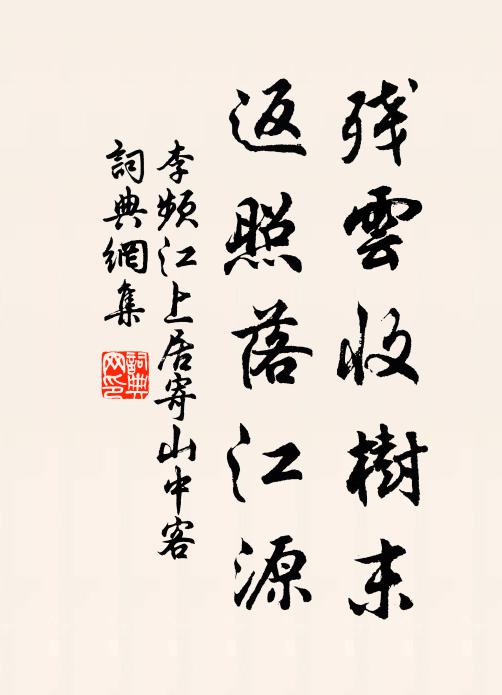 残雲收樹末
返照落江源
李頻江上居寄山中客
詞典網集
詞典网印